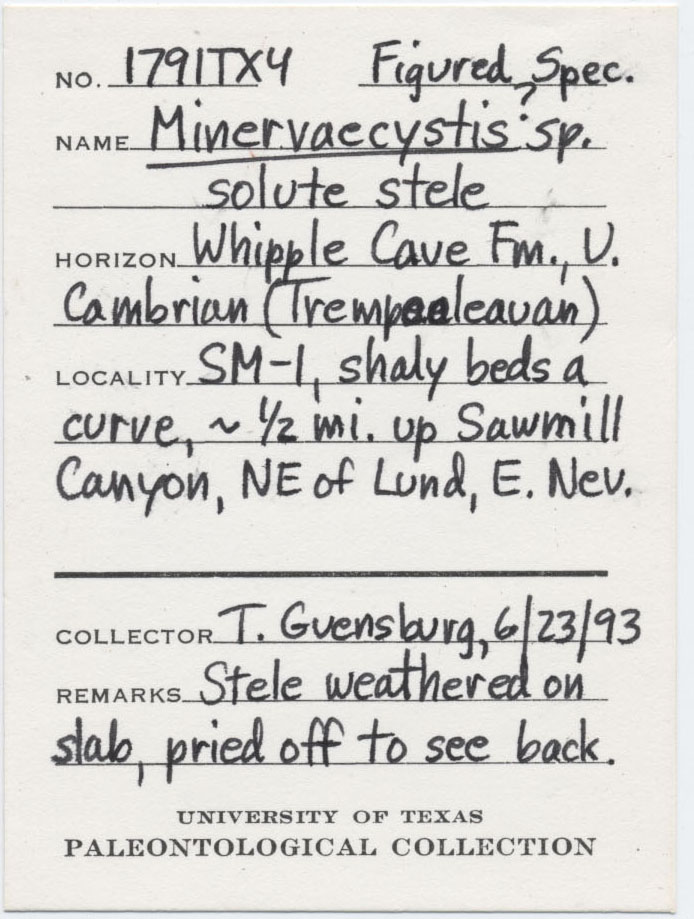 NO. 1791TX4 Figured Spec.
NAME Minervaecystis? sp.
solute stele
HORIZON Whipple Cave Fm., U.
Cambrian (Trempealeauan)
LOCALITY SM-1, shaly beds a
curve, ~ 1/2 mi. up Sawmill
Canyon, NE of Lund, E. Nev.
COLLECTOR T. Guensburg, 6/23/93
REMARKS Stele weathered on
slab, pried off to see back.
UNIVERSITY OF TEXAS
PALEONTOLOGICAL COLLECTION